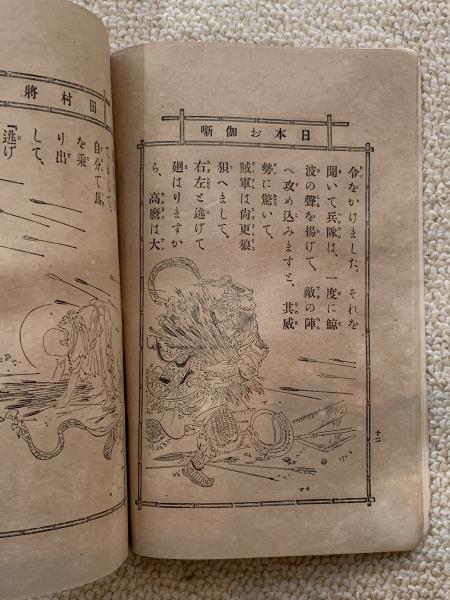 日本お伽噺
令をかけました。それを
聞いて兵隊は、一度に鯨
波の聲を揚げて、敵の陣
へ攻め込みますと、其威
勢に驚いて、
賊軍は尚更狼
狽へまして、
右左と逃げて
廻はりますか
ら、高麿は大
十二
田村將
自分で馬
を乗
り出
して、
「逃げ